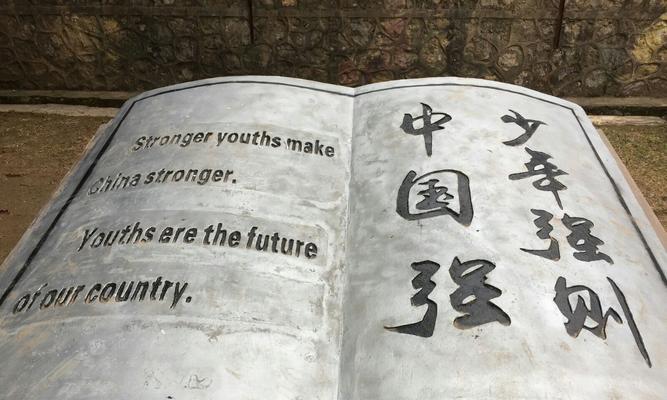 Stronger youths make
China stronger.
Youths are the future
of our country.
少年强则
中国强